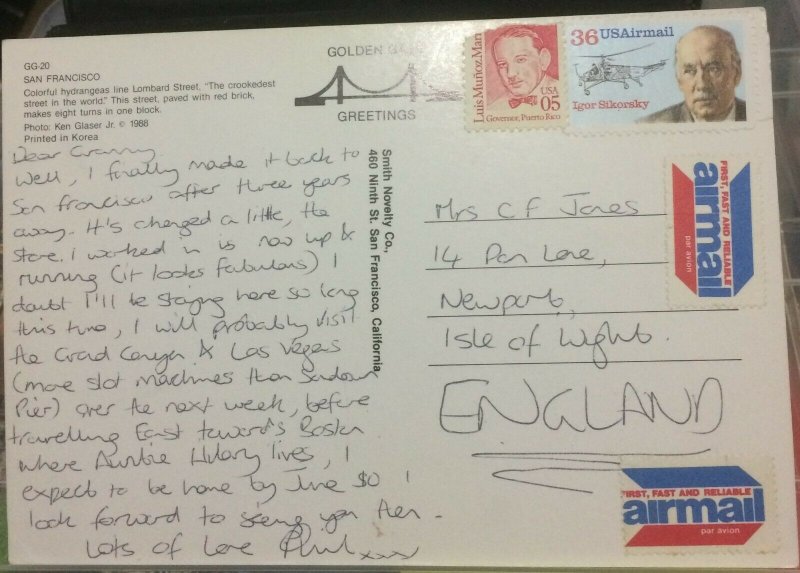 GG-20
SAN FRANCISCO
Colorful hydrangeas line Lombard Street, "The crookedest
street in the world." This street, paved with red brick,
makes eight turns in one block.
Photo: Ken Glaser Jr. © 1988
Printed in Korea
GOLDEN GATE
GREETINGS
Luis Muñoz Marin
USA
05
Governor, Puerto Rico
36 USAirmail
Igor Sikorsky
Dear Granny
Well, I finally made it back to
San Francisco after three years
away. It's changed a little, the
store I worked in is now up &
running (it looks fabulous) I
doubt I'll be staying here so long
this time, I will probably visit
the Grand Canyon & Las Vegas
(more slot machines than Sandown
Pier) over the next week, before
travelling East towards Boston
where Auntie Hilary lives, I
expect to be home by June so I
look forward to seeing you then.
Lots of love Phil xxx
Smith Novelty Co.,
460 Ninth St. San Francisco, California
Mrs C F Jones
14 Pan Lane,
Newport,
Isle of Wight.
ENGLAND
FIRST, FAST AND RELIABLE
airmail
par avion
FIRST, FAST AND RELIABLE
airmail
par avion